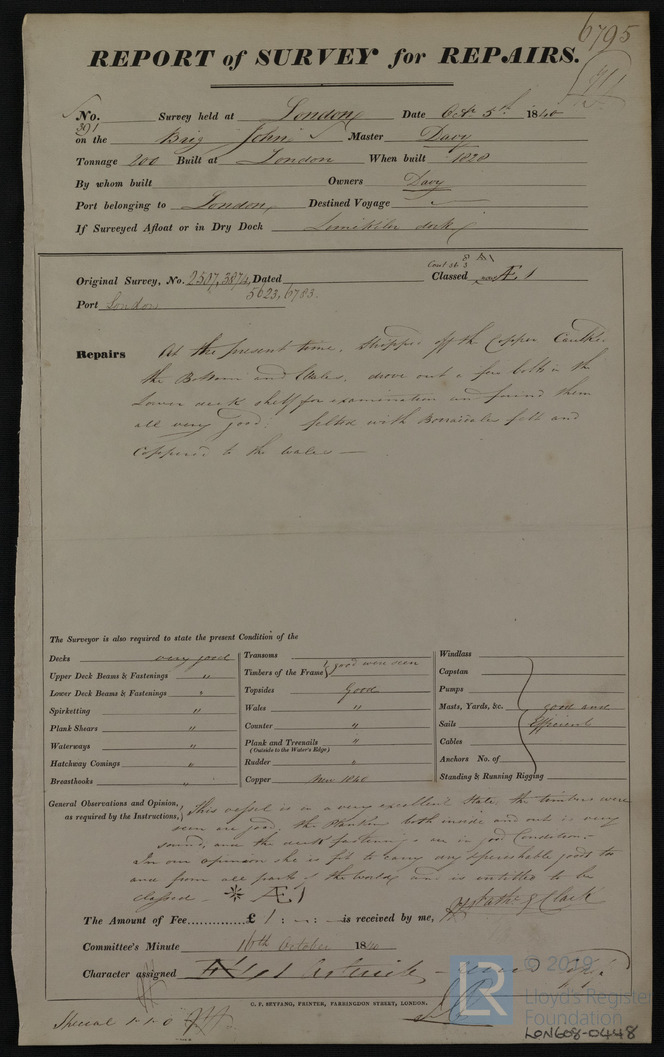 6795
REPORT of SURVEY for REPAIRS.
No. 391 Survey held at London Date Oct 5th 1840
on the Brig John Master Davy
Tonnage 200 Built at London When built 1828
By whom built Owners Davy
Port belonging to London Destined Voyage
If Surveyed Afloat or in Dry Dock Limekiln dock
Original Survey, No. 2507, 3874, Dated Classed Æ 1
5623, 6783.
Port London
Repairs At the present time. Stripped off the Copper Caulked
the Bottom and Wales, drove out a few bolts in the
Lower deck shelf for examination and found them
all very good; felted with Borradailes felt and
Coppered to the wales —
The Surveyor is also required to state the present Condition of the
Decks very good
Upper Deck Beams & Fastenings "
Lower Deck Beams & Fastenings "
Spirketting "
Plank Shears "
Waterways "
Hatchway Comings "
Breasthooks "
Transoms
Timbers of the Frame } good were seen
Topsides Good
Wales "
Counter "
Plank and Treenails "
(Outside to the Water's Edge)
Rudder "
Copper New 1840
Windlass
Capstan
Pumps
Masts, Yards, &c. good and
Sails Efficient
Cables
Anchors No. of
Standing & Running Rigging
General Observations and Opinion, This vessel is in a very excellent state the timbers were
as required by the Instructions, seen are good, the Planking both inside and out is very
sound, and the deck fastenings are in good Condition.
In our opinion she is fit to carry any perishable goods to
and from all parts of the world, and is entitled to be
classed — * Æ 1
The Amount of Fee............£ 1 : — : — is received by me, Clark
Committee's Minute 16th October 1840
Character assigned
G. F. SEYFANG, PRINTER, FARRINGDON STREET, LONDON.
Special 1.1.0
© 2019
LR
Lloyd's Register
Foundation
LON608-0448